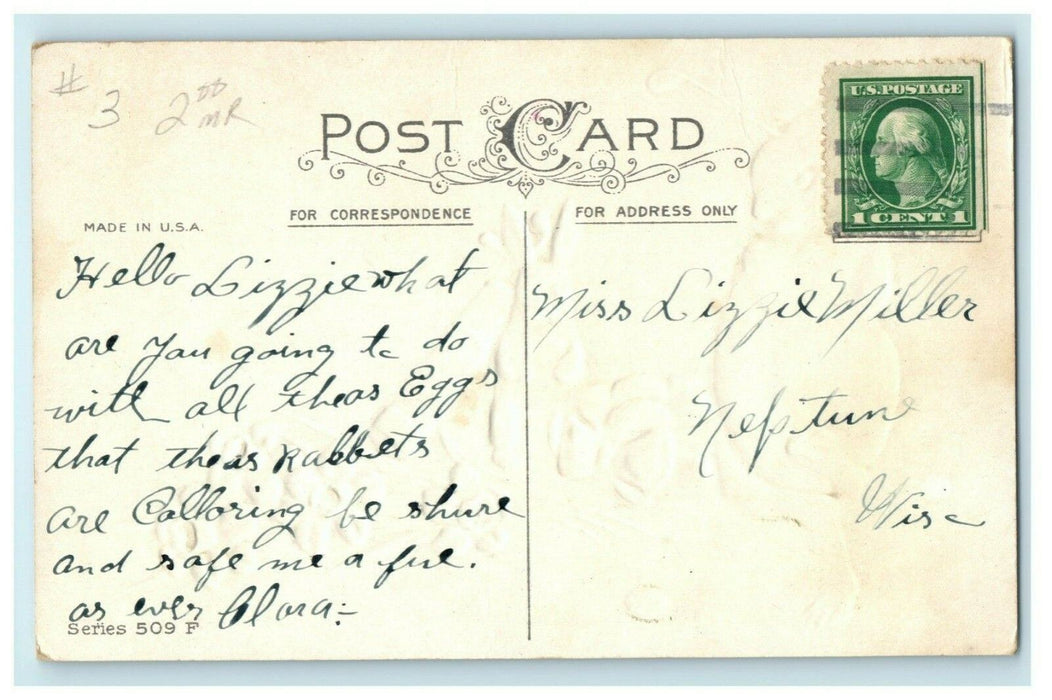 # 3 2.00 MR
POST CARD
U.S. POSTAGE
1 CENT 1
MADE IN U.S.A.
FOR CORRESPONDENCE
FOR ADDRESS ONLY
Hello Lizzie what
are you going to do
with all theas Eggs
that theas Rabbets
are Colloring be shure
and safe me a fue.
as ever Clara:-
Series 509 F
Miss Lizzie Miller
Neptune
Wisc